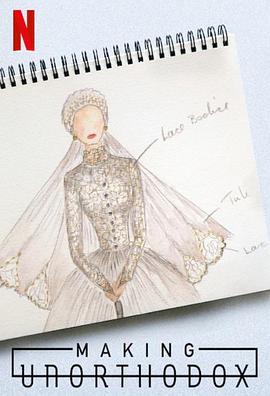 N
Lace Bodice
Tulle
Lace
MAKING
UNORTHODOX